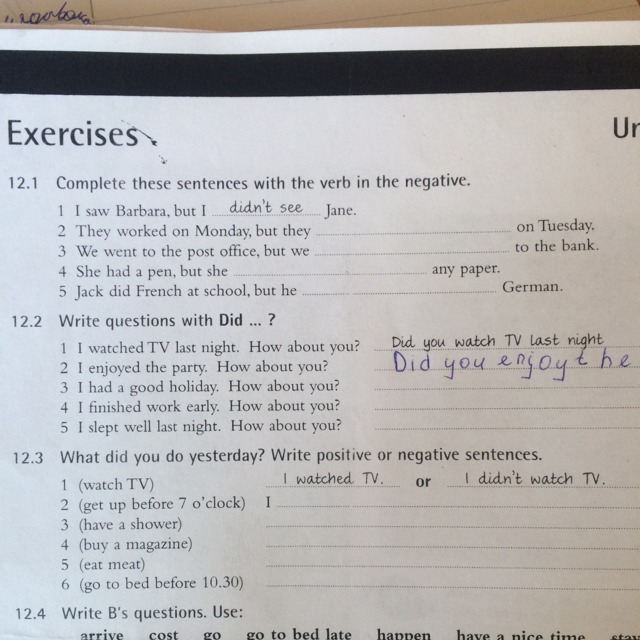 Exercises
Un
12.1 Complete these sentences with the verb in the negative.
1 I saw Barbara, but I didn't see Jane.
2 They worked on Monday, but they on Tuesday.
3 We went to the post office, but we to the bank.
4 She had a pen, but she any paper.
5 Jack did French at school, but he German.
12.2 Write questions with Did ... ?
1 I watched TV last night. How about you? Did you watch TV last night
2 I enjoyed the party. How about you? Did you enjoy the
3 I had a good holiday. How about you?
4 I finished work early. How about you?
5 I slept well last night. How about you?
12.3 What did you do yesterday? Write positive or negative sentences.
1 (watch TV) I watched TV. or I didn't watch TV.
2 (get up before 7 o'clock) I
3 (have a shower)
4 (buy a magazine)
5 (eat meat)
6 (go to bed before 10.30)
12.4 Write B's questions. Use:
arrive cost go go to bed late happen have a nice time stay